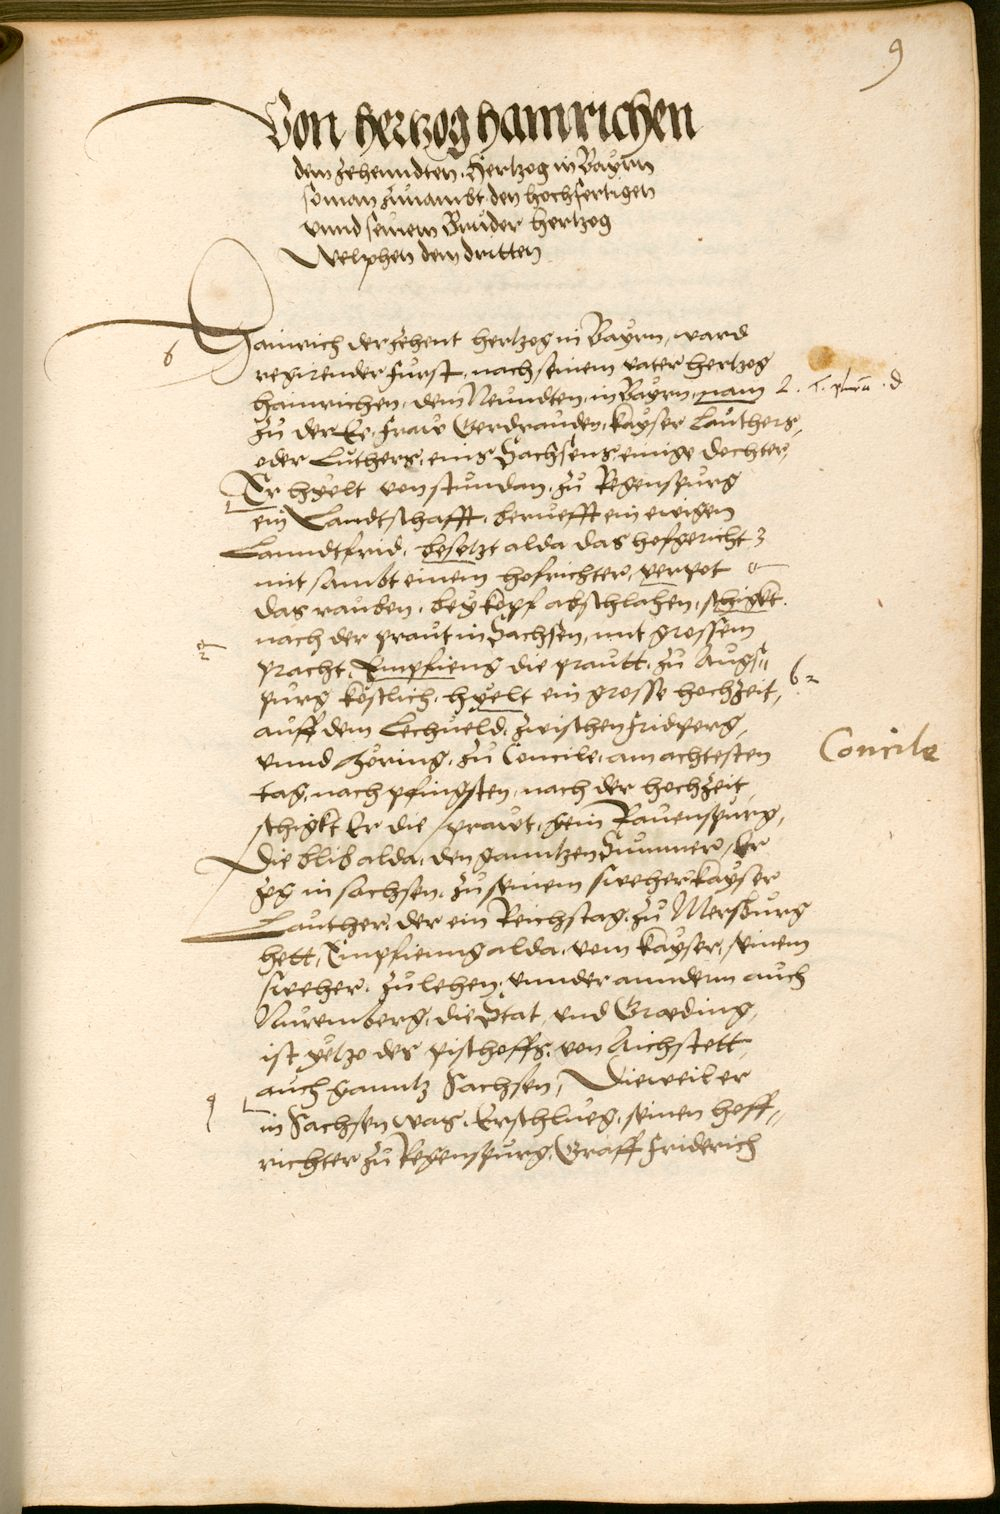 9
Von hertzog hainrichen
dem zehenndten. Hertzog in Bayrn
so man zunambt den hochfertigen
vnnd seinem Bruder hertzog
Welphen dem dritten
Hainrich der zehent hertzog in Bayrn, ward
6
regirender Furst, nach seinem vater hertzog
hainrichen, dem Neundten, in Bayrn, nam
zu der Ee, Fraw Gerdrauden, kayser Lauthers,
oder Luthers, eins Sachsens, einige dochter,
Er hyelt von stundan, zu Regenspurg
ein Landtschafft, berueft ein ewigen
Lanndtfrid, besetzt alda das hofgericht
mit sambt einem hofrichter, verpot
das rauben, bey kopf abschlahen, schigkt
nach der praut in Sachsen, mit grossem
pracht, Empfieng die prautt, zu Augs//
purg köstlich, hyelt ein grosse hochzeit,
auff dem Lechueld, zwischen Fridperg,
vnnd Möring, zu Concile, am achtesten
Concile
tag, nach pfingsten, nach der hochzeit
schigkt Er die prawt, gein Rauenspurg,
Die blib alda, den ganntzen Summer, Er
zog in sachsen, zu seinem sweher kayser
Lauther, der ein Reichstag, zu Mersburg
hett, Empfienng alda, vom kayser, seinem
sweher, zu lehen, vnnder anndern auch
Nuremberg, die Stat, vnd Greding,
ist yetzo des pischoffs, von Aichstett
auch ganntz Sachsen, Dieweil er
in Sachsen was, Erschlueg, seinen hoff//
richter zu Regenspurg, Graff Friderich